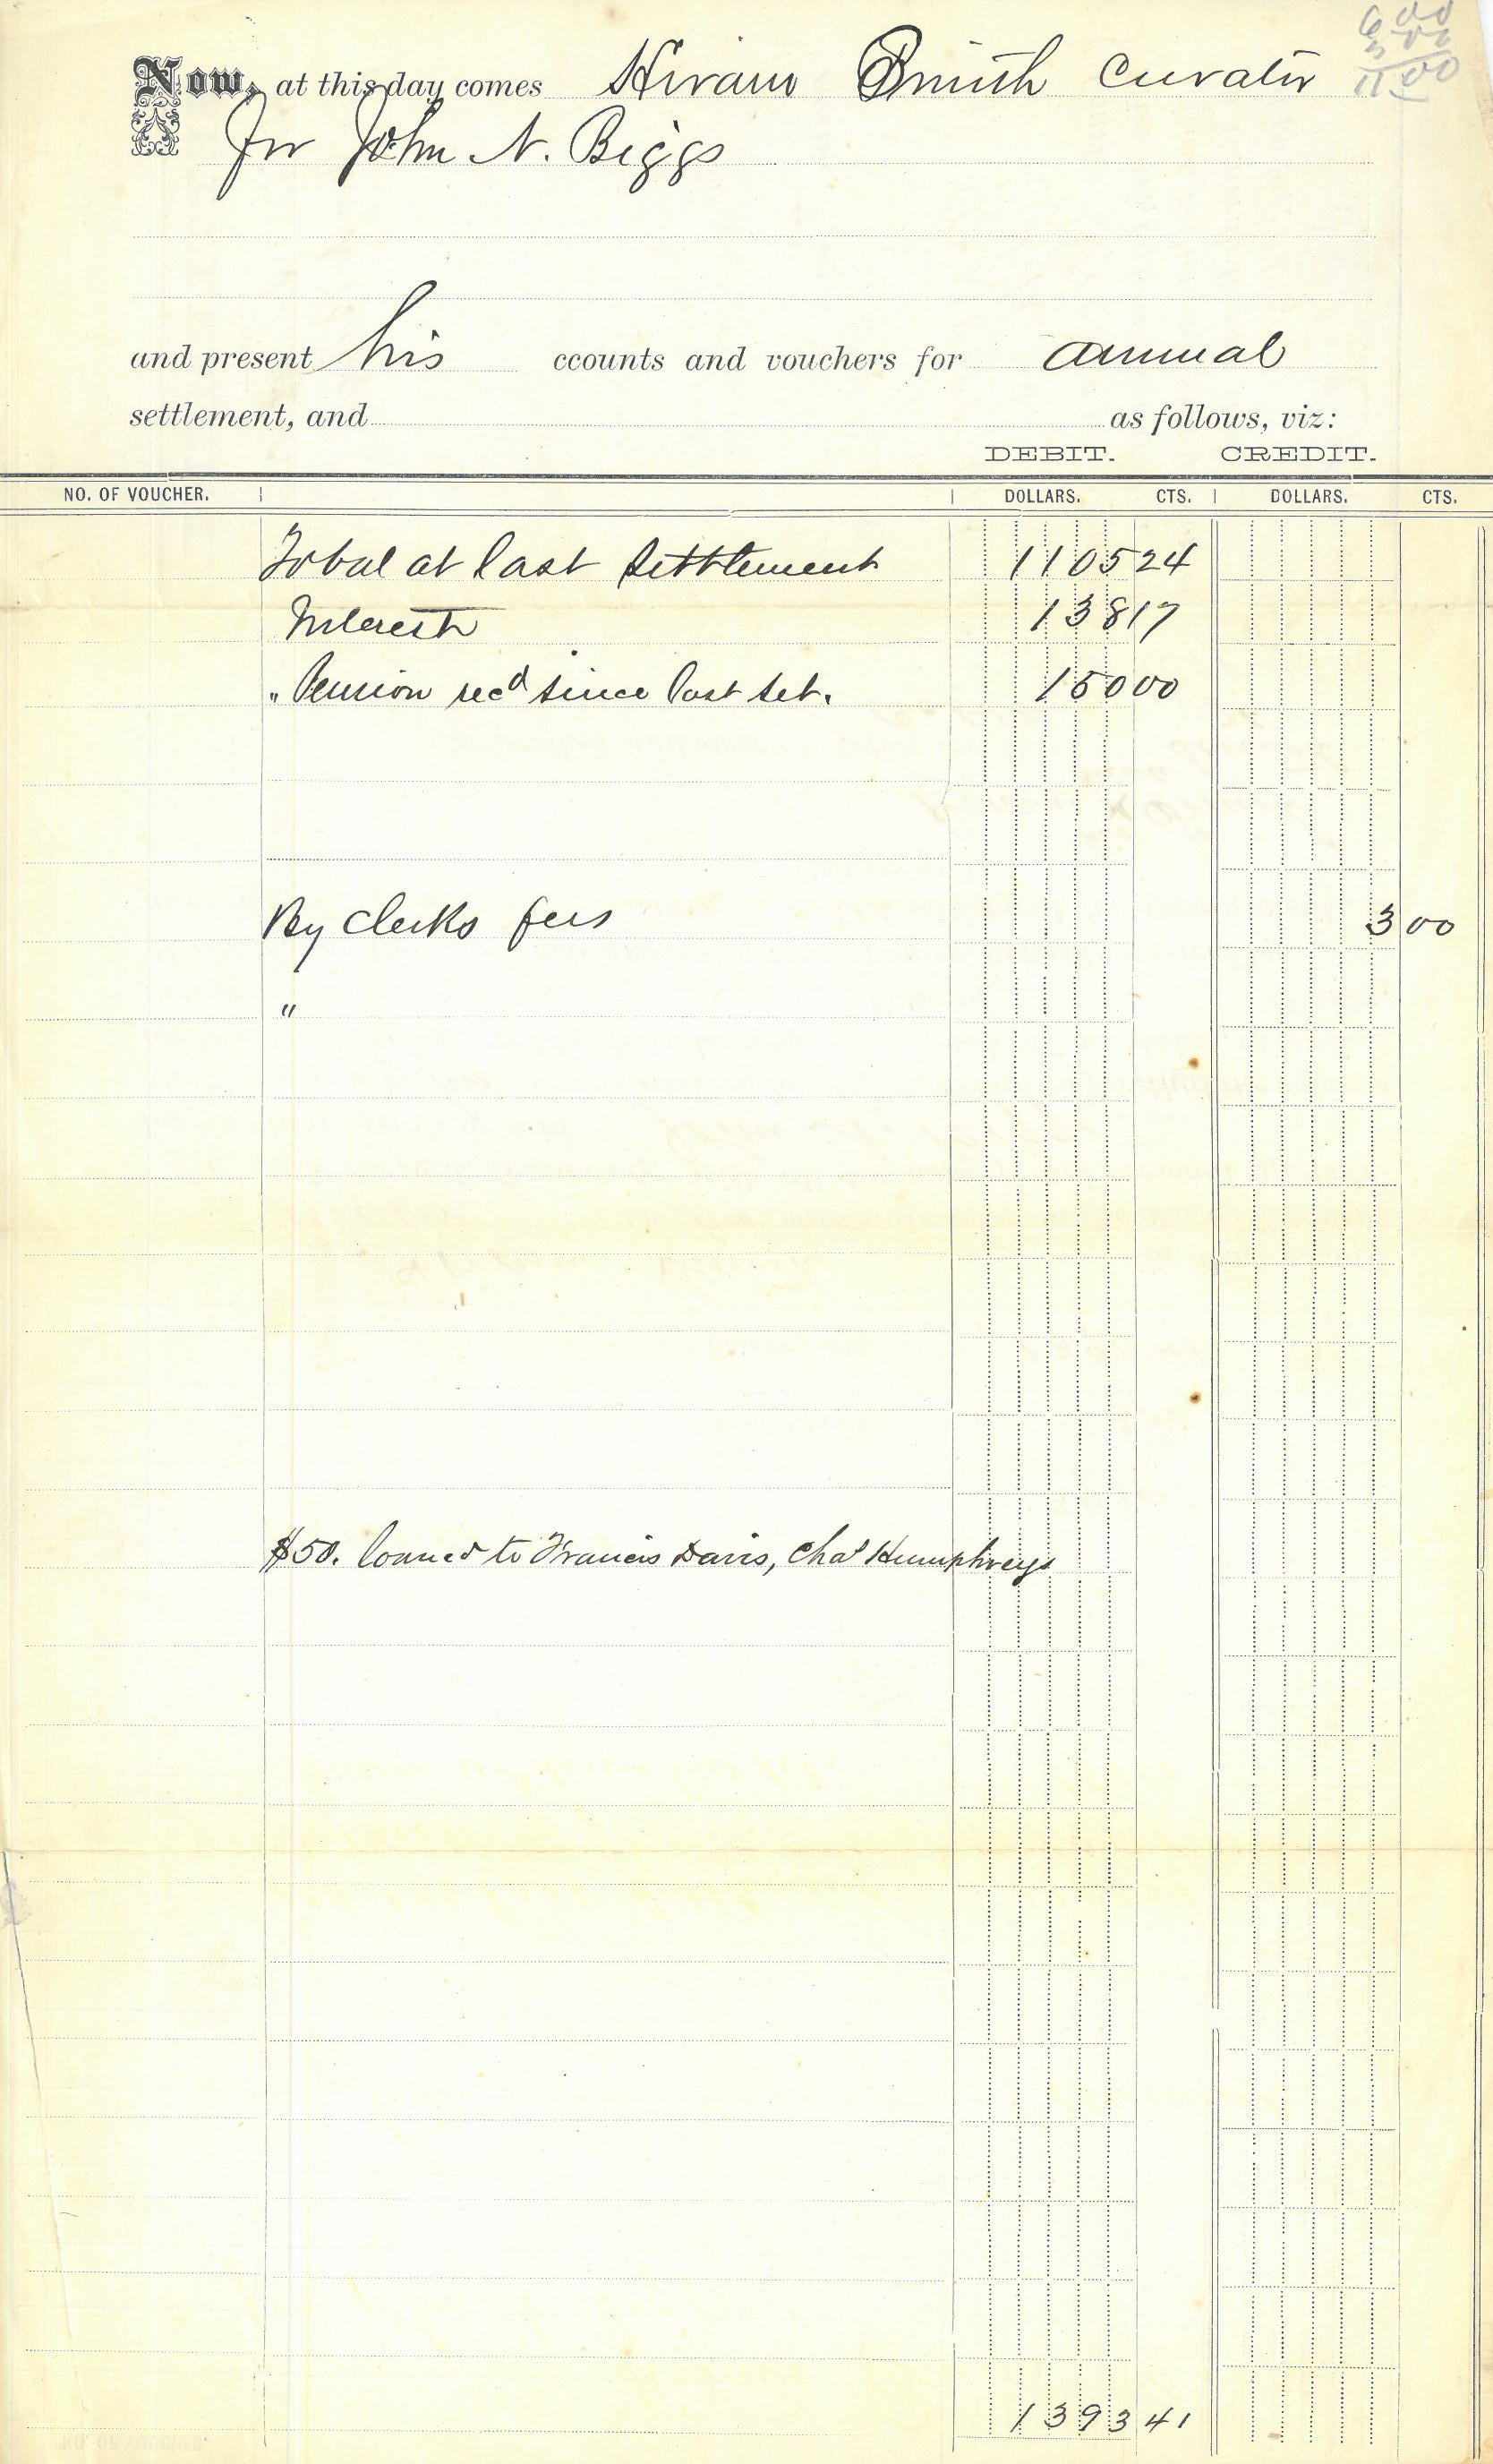 6 00
5 00
11 00
Now, at this day comes Hiram Smith Curator
for John N. Biggs
and present his ccounts and vouchers for annual
settlement, and as follows, viz:
DEBIT. CREDIT.
NO. OF VOUCHER. DOLLARS. CTS. DOLLARS. CTS.
Total at last Settlement 1105 24
Interest 138 17
" Pension recd since last set. 150 00
By Clerks fees 3 00
"
$50. loaned to Francis Davis, Chas Humphreys
1393 41